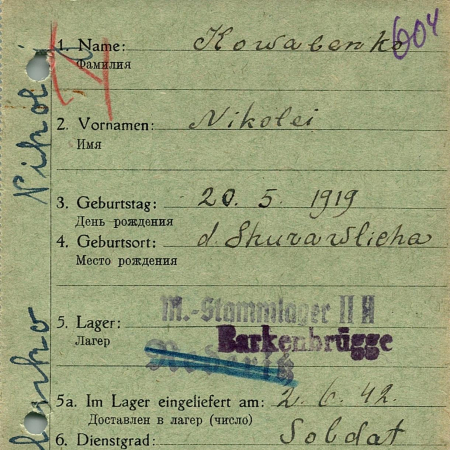 604
1. Name: Kowalenko
Фамилия
2. Vornamen: Nikolei
Имя
3. Geburtstag: 20. 5. 1919
День рождения
4. Geburtsort: d. Shurawlicha
Место рождения
M.-Stammlager II H
5. Lager: Barkenbrügge
Лагер
5a. Im Lager eingeliefert am: 2. 6. 42.
Доставлен в лагер (число)
6. Dienstgrad: Soldat
Nikol
lenko